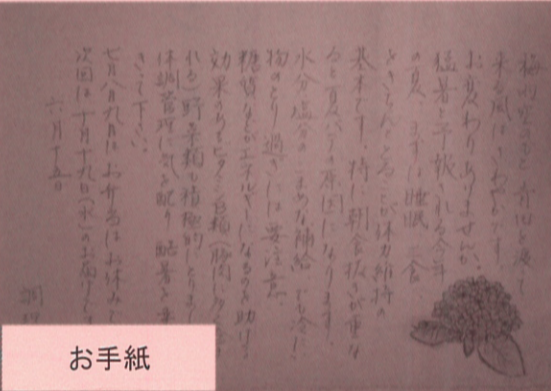 梅雨空のもと青田を渡って
来る風はさわやかです。
お変わりありませんか。
猛暑と予報される今年
の夏、まずは睡眠、三食
をきちんととることが体力維持の
基本です。特に朝食抜きが重な
ると夏バテの原因になります。
水分塩分のこまめな補給、でも冷たい
物のとり過ぎには要注意、
糖質などがエネルギーになるのを助ける
効果のあるビタミンB1類(豚肉に多く
れる)野菜類も積極的にとりましょ
体調管理に気を配り酷暑を乗
きって下さい。
七月八月九月はお弁当はお休みし
次回は十月十九日(水)のお届けとな
六月十五日
調理
お手紙